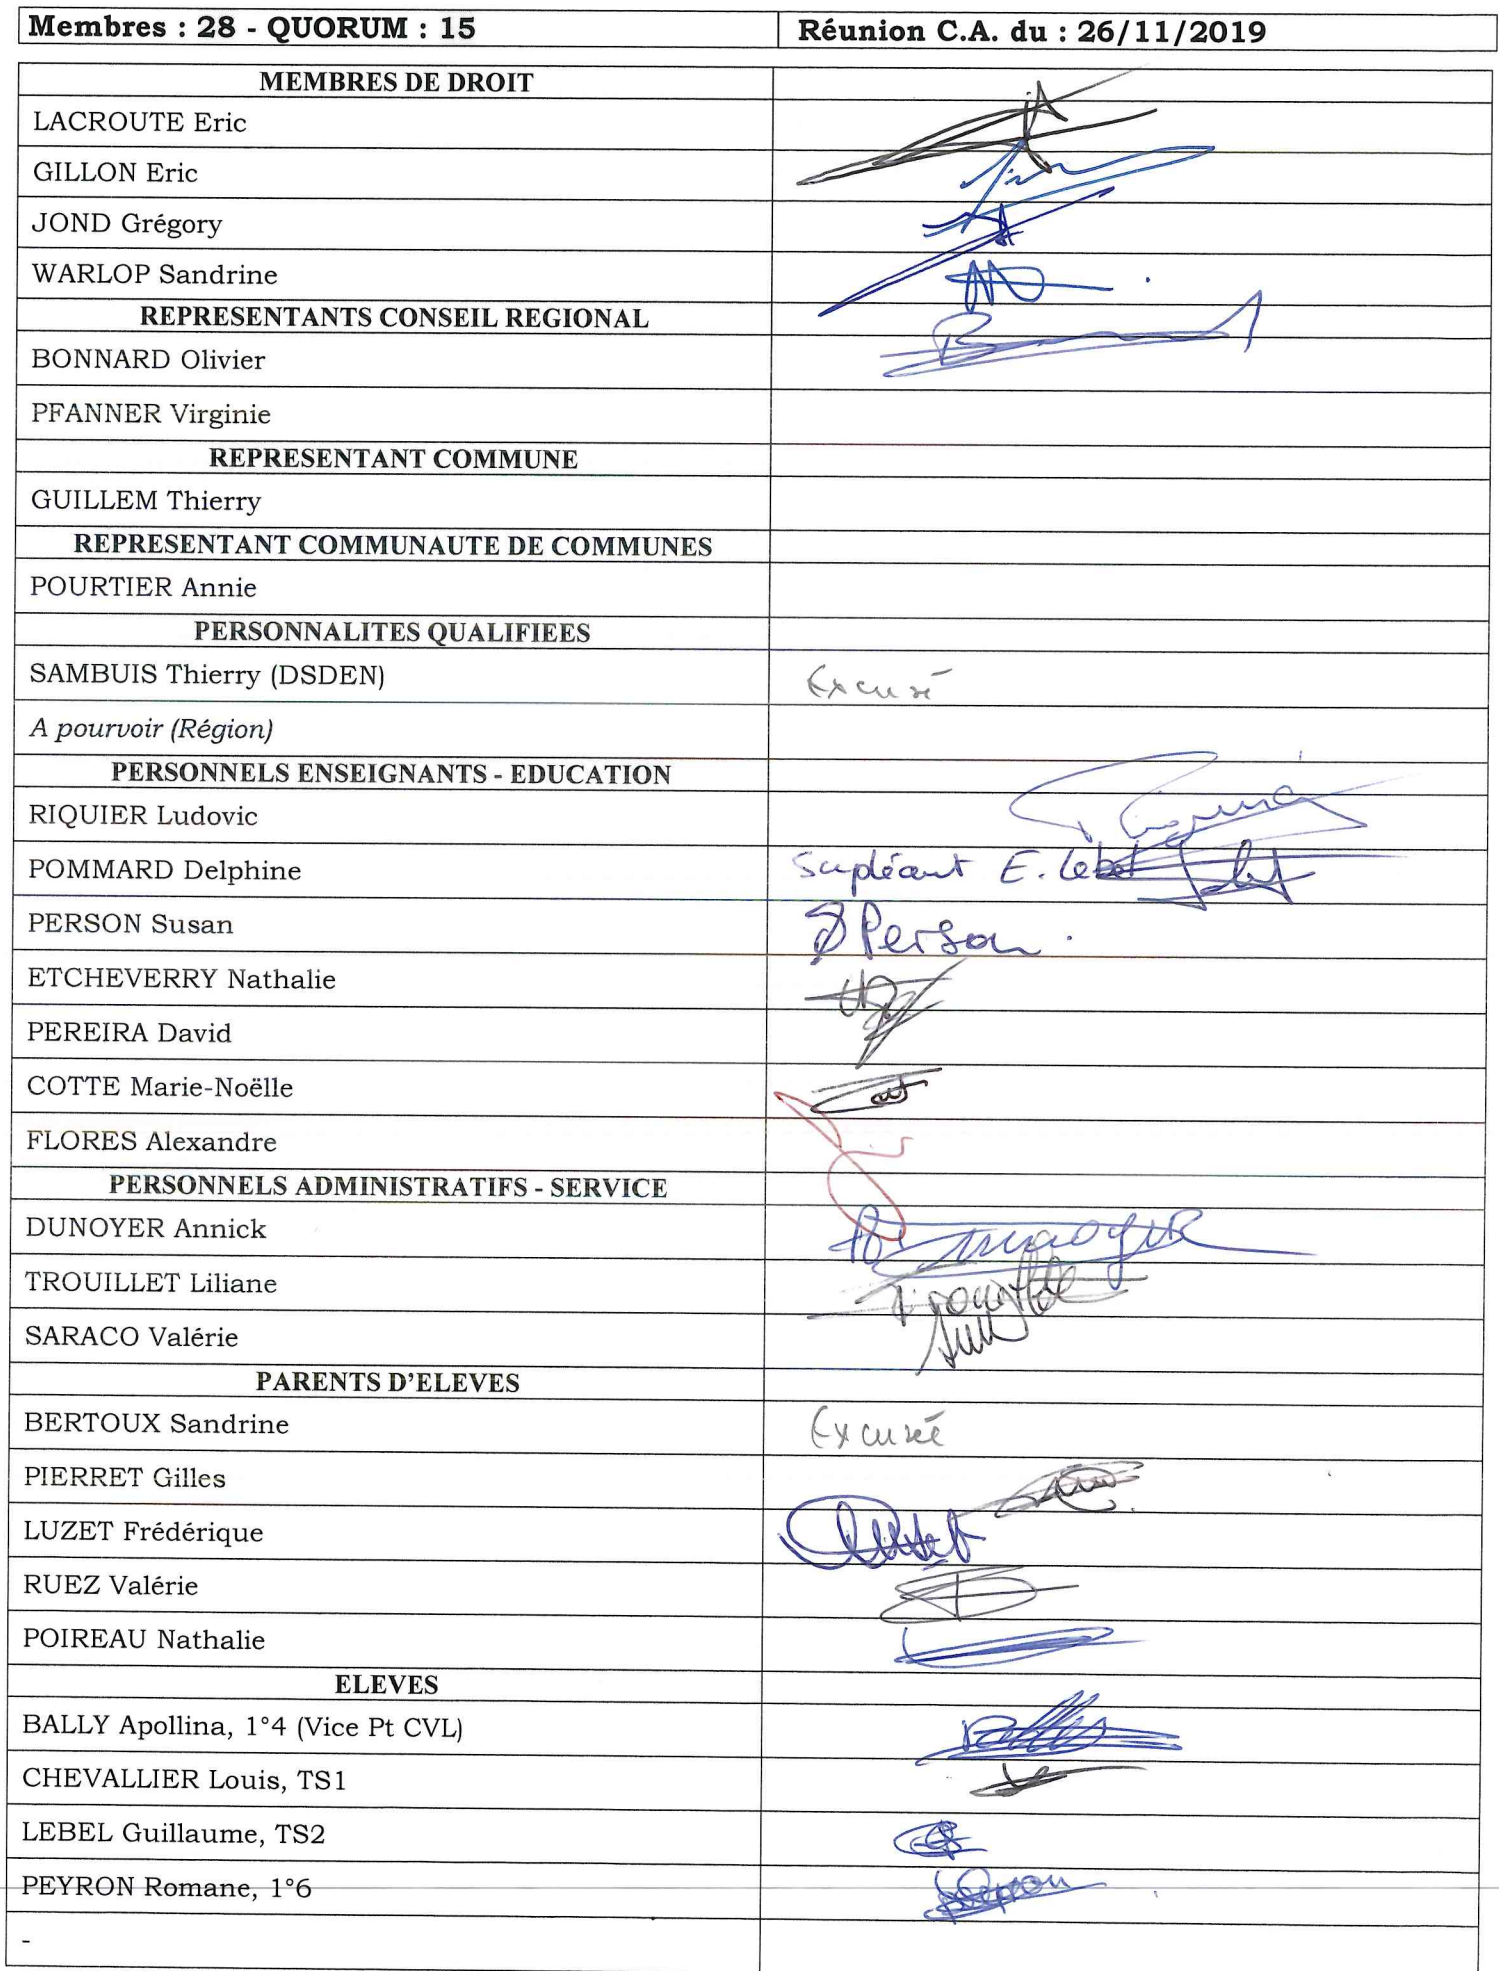 Membres : 28 - QUORUM : 15 Réunion C.A. du : 26/11/2019
MEMBRES DE DROIT
LACROUTE Eric
GILLON Eric
JOND Grégory
WARLOP Sandrine
REPRESENTANTS CONSEIL REGIONAL
BONNARD Olivier
PFANNER Virginie
REPRESENTANT COMMUNE
GUILLEM Thierry
REPRESENTANT COMMUNAUTE DE COMMUNES
POURTIER Annie
PERSONNALITES QUALIFIEES
SAMBUIS Thierry (DSDEN) Excusé
A pourvoir (Région)
PERSONNELS ENSEIGNANTS - EDUCATION
RIQUIER Ludovic
POMMARD Delphine Supléant E. Lebel
PERSON Susan S Person
ETCHEVERRY Nathalie
PEREIRA David
COTTE Marie-Noëlle
FLORES Alexandre
PERSONNELS ADMINISTRATIFS - SERVICE
DUNOYER Annick
TROUILLET Liliane
SARACO Valérie
PARENTS D'ELEVES
BERTOUX Sandrine Excusée
PIERRET Gilles
LUZET Frédérique
RUEZ Valérie
POIREAU Nathalie
ELEVES
BALLY Apollina, 1°4 (Vice Pt CVL)
CHEVALLIER Louis, TS1
LEBEL Guillaume, TS2
PEYRON Romane, 1°6
-